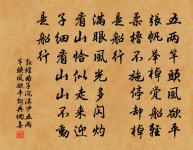 五兩竿頭風欲平
張帆舉棹覺船輕
柔櫓不施停却棹
是船行
滿眼風光多閃灼
看山恰似走來迎
子細看山山不動
是船行
敦煌曲子浣溪沙五兩
竿頭風欲平